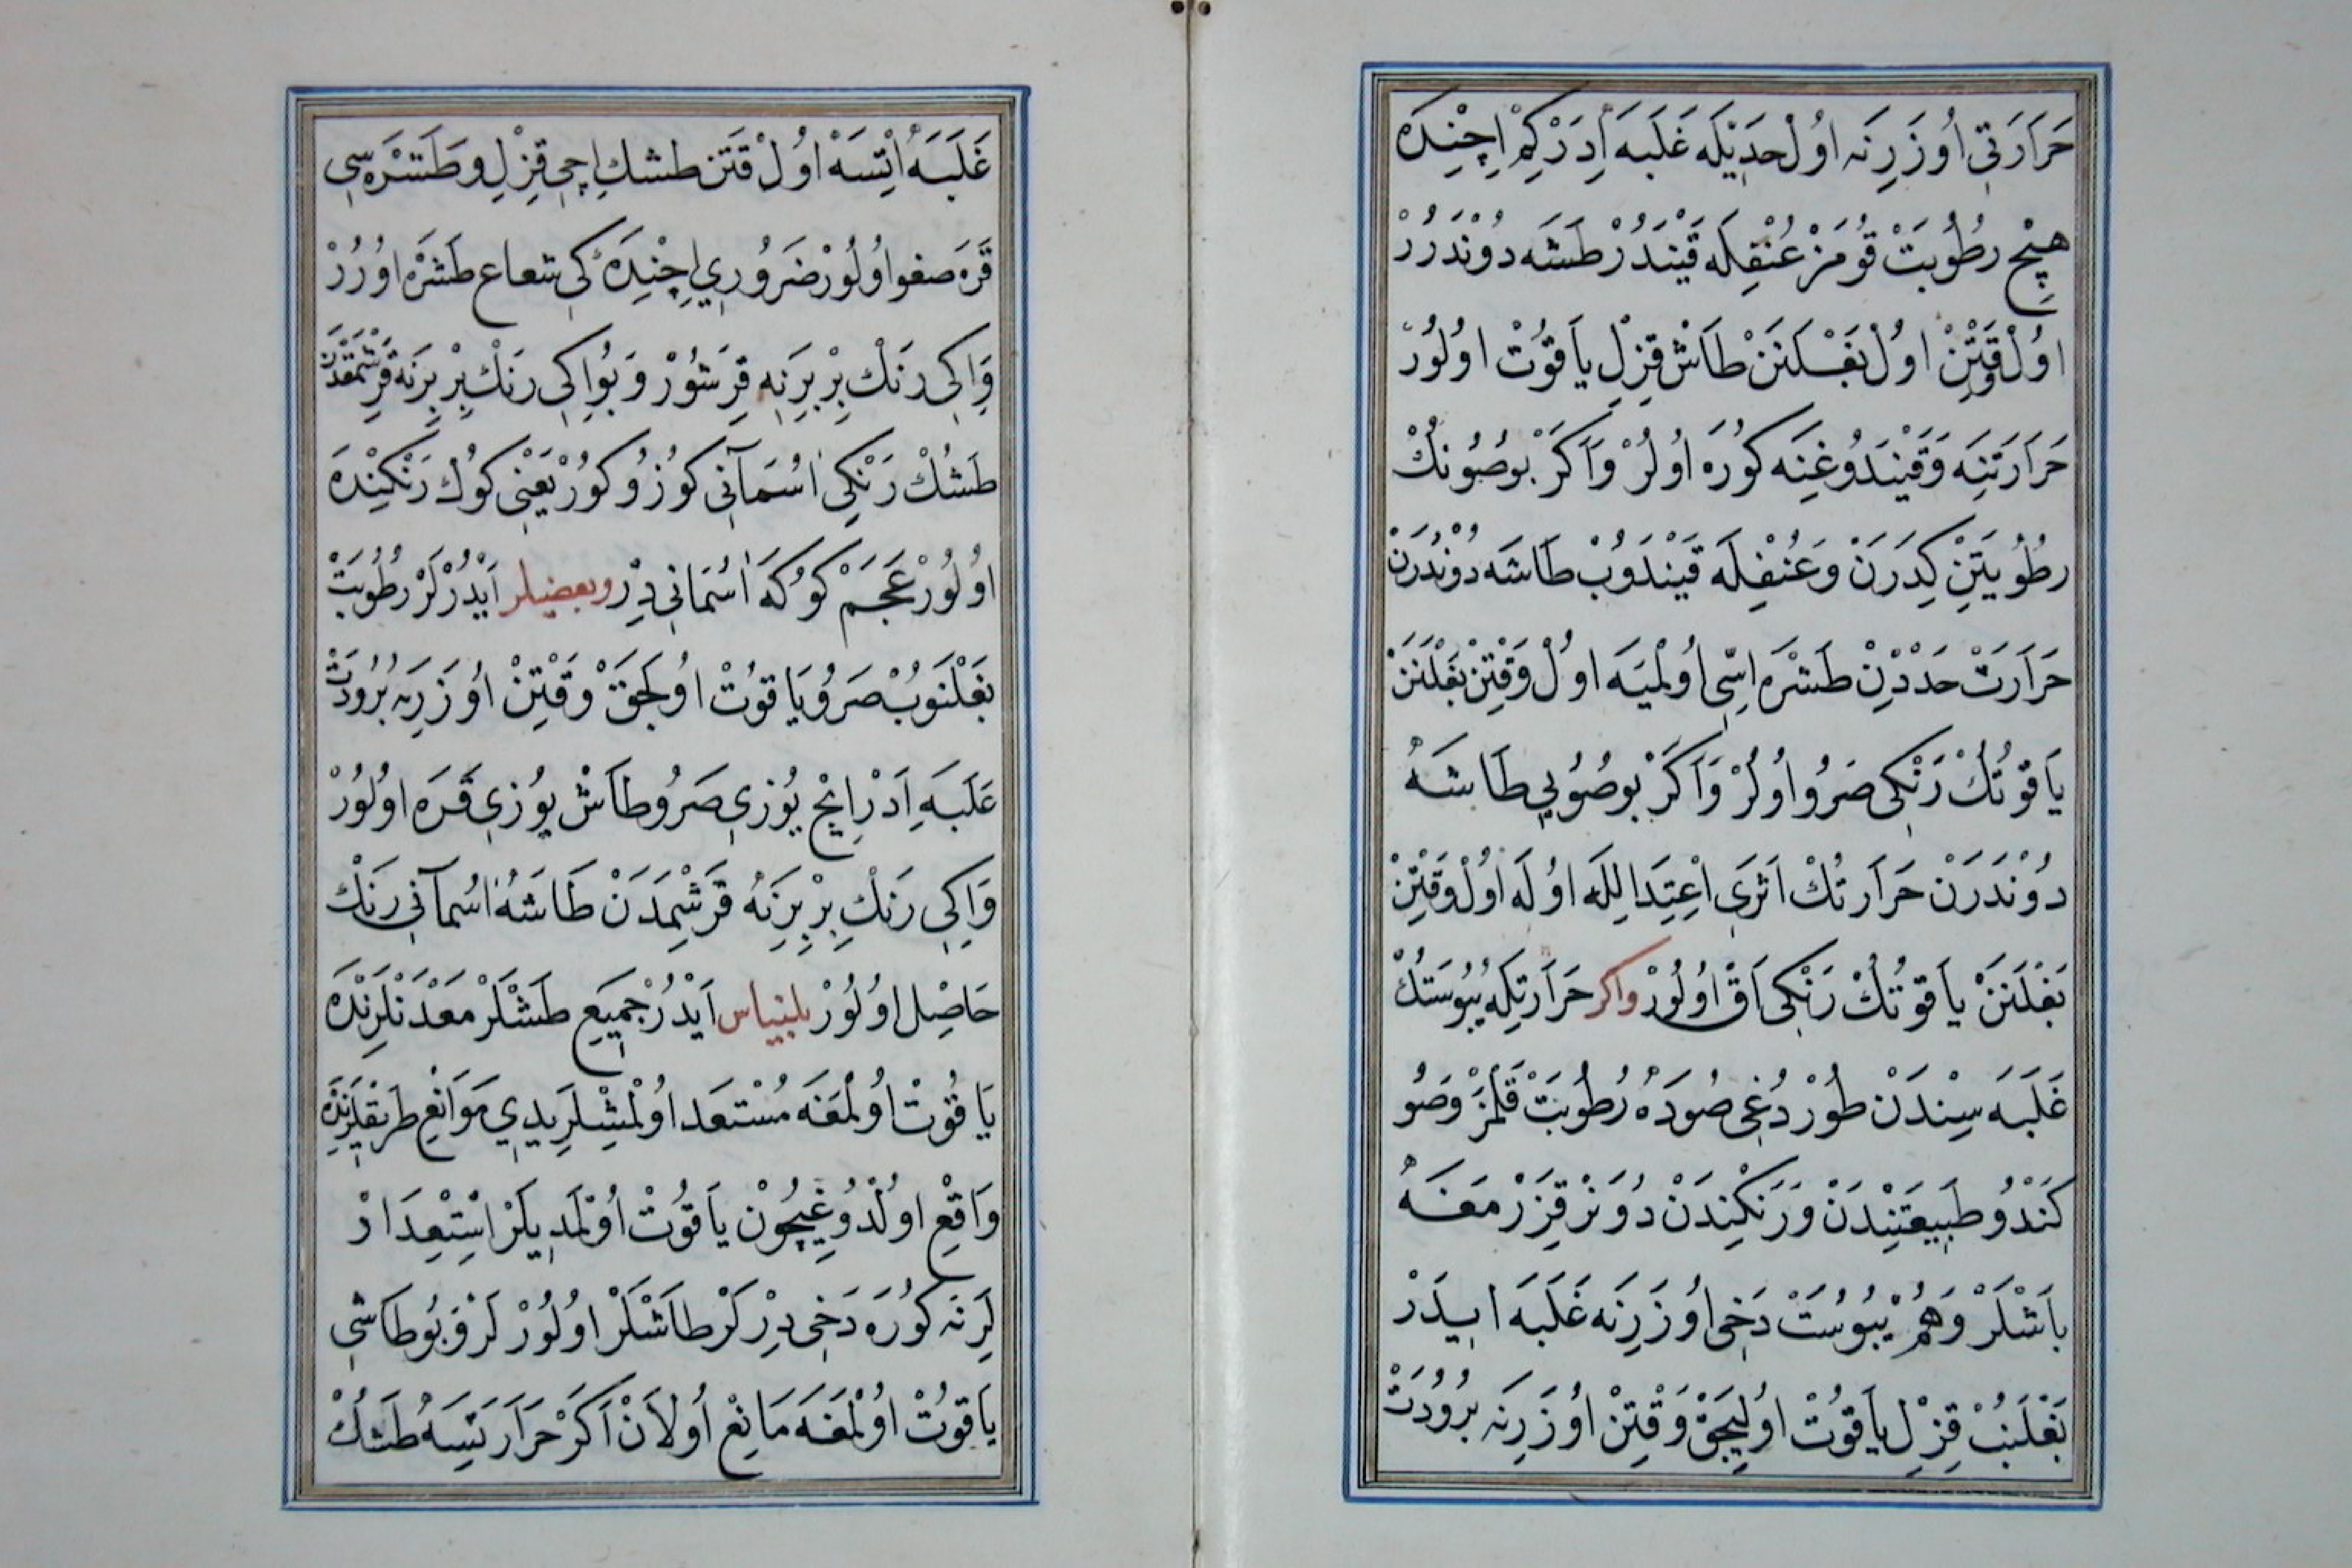 حَرَارَتِی اُوزَرِنَه اوُلْ حدَیْلَه غَلَبَه اِدَرْكِمْ اِچِنْدَه
هِیْچ رطُوُبَتْ قوُمَزْ عُنْفِلَه قَیْنَدُرْ طَشَه دوُنْدَرُرْ
اوُلْ وَقْتِنْ اوُلْ بَغْلَنَنْ طَاشْ قِزِلْ یَاقُوُتْ اوُلُورْ
حَرَارَتِنِه وَقَیْنَدُوغِنَه كوُرَه اوُلُرْ وَاَكَرْ بوصُوُنكْ
رطُوُبَتِنْ كِدَرَنْ وَعُنْفِلَه قَیْنَدوُبْ طَاشَه دوُنْدُرَنْ
حَرَارَتْ حَدْدِنْ طَشْرَه اِسّی اوُلْمَیَه اوُلْ وَقْتِنْ بَغْلَنَنْ
یَاقوُتُكْ رَنْكِی صَرُو اوُلُرْ وَاَكَرْ بوصُوُیِی طَاشَهْ
دوُنْدَرَنْ حَرَارتُكْ اَثَرِی اعْتِدَالِلَه اوُلَه اوُلْ وَقْتِنْ
بَغْلَنَنْ یَاقوُتُكْ رَنْكِی اَقْ اوُلُورْ وَاكر حَرَارَتِلَه یُبُوسَتُكْ
غَلَبَه سِنْدَنْ طوُرْدُغِی صُودَهْ رُطُوُبَتْ قَلْمَزْ وَصُو
كَنْدُو طَبِیعَتِنْدَنْ وَرَنْكِنْدَنْ دُونَرْ قِزَرْمَغَهْ
بَاشْلَرْ وَهَمْ یُبُوُسَتْ دَخِی اوُزَرِنَه غَلَبَه ایدَرْ
بَغْلَنُبْ قِزِلْ یَاقوُتْ اوُلِیجَقْ وَقْتِنْ اوُزَرِنَه بُرُودَتْ
غَلَبَهْ اَتِسَهْ اوُلْ وقَتِن طشكِ اِچِی قِزْلِ وطَشْرَه سِی
قَرَه صفو اوُلُورْ ضَرُورِی اِچِنْدَه كِی شعاع طَشْرَه اوُرُرْ
وَاِكِی رَنْكْ بِرْبِرِنِه قِرَشوُرْ وَبُو اِكِی رَنْكْ بِرْبِرِنَه قَرِشْمَقْدَنْ
طَشُكْ رَنْكِی اسُمَآنِی كوُزُوكوُرْ یَعْنِی كوُكْ رَنْكِنْدَه
اوُلُورْ عَجَمْ كوُكَهْ اسُمَانِی دِرْ وبعضیلر اَیْدُرْلَرْ رطُوُبَتْ
بَغْلَنوُبْ صَرُو یَاقوُتْ اوُلَجَقْ وَقْتِنْ اوُزَرِنَه بُرُودَتْ
غَلَبَه اِدَرْ اِیْچ یُوزِی صَرُو طَاشْ یوُزِی قَرَه اوُلُورْ
وَاِكِی رَنْكِ بِرْبِرِنَهْ قَرِشْمَدَنْ طَاشَهْ اسُمآنِی رَنْكْ
حَاصِل اوُلُورْ بلینیاس اَیْدُرْ جَمِیعِ طَشْلَرْ مَعْدَنْلَرِنْدَه
یَاقُوتْ اوُلْمَغَه مُسْتعَد اوُلْمِشْلَرِیدِی مَوَانِعِ طَرِیقْلَرِنْدَه
وَاقِعِ اوُلْدُوغِیچُوُن یَاقُوتْ اوُلْمَدِیلَرْ اسْتِعْدَادْ
لَرِنَه كوُرَه دَخِی دِرْلَرْ طَاشْلَرْ اوُلُورْلَرْ وَبُو طَاشِی
یَاقوُتْ اوُلْمَغَه مَانِعْ اوُلاَنْ اَكَرْ حَرَارَتِسَهْ طَشُكْ